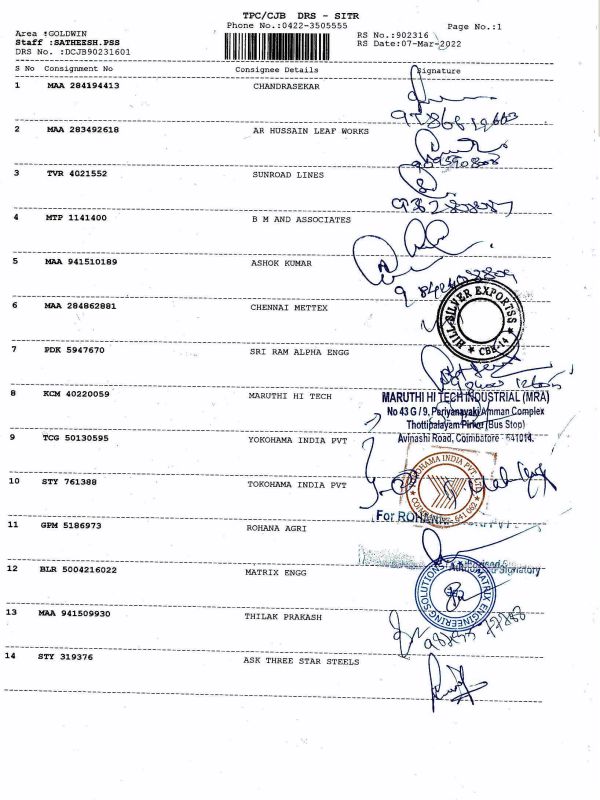 TPC/CJB DRS - SITR
Phone No.:0422-3505555
Page No.:1
Area :GOLDWIN
RS No.:902316
Staff :SATHEESH.PSS
RS Date:07-Mar-2022
DRS No. :DCJB90231601
S No Consignment No Consignee Details Signature
1 MAA 284194413 CHANDRASEKAR
2 MAA 283492618 AR HUSSAIN LEAF WORKS
3 TVR 4021552 SUNROAD LINES
4 MTP 1141400 B M AND ASSOCIATES
5 MAA 941510189 ASHOK KUMAR
6 MAA 284862881 CHENNAI METTEX
HILL SILVER EXPORTSS
CBE-14
7 PDK 5947670 SRI RAM ALPHA ENGG
8 KCM 40220059 MARUTHI HI TECH
MARUTHI HI TECH INDUSTRIAL (MRA)
No 43 G / 9, Periyanayaki Amman Complex
Thottipalayam Pirivu (Bus Stop)
Avinashi Road, Coimbatore - 641014.
9 TCG 50130595 YOKOHAMA INDIA PVT
10 STY 761388 TOKOHAMA INDIA PVT
YOKOHAMA INDIA PVT. LTD
For ROHANA
11 GPM 5186973 ROHANA AGRI
Authorised Signatory
12 BLR 5004216022 MATRIX ENGG
MATRIX ENGINEERING SOLUTIONS
13 MAA 941509930 THILAK PRAKASH
14 STY 319376 ASK THREE STAR STEELS